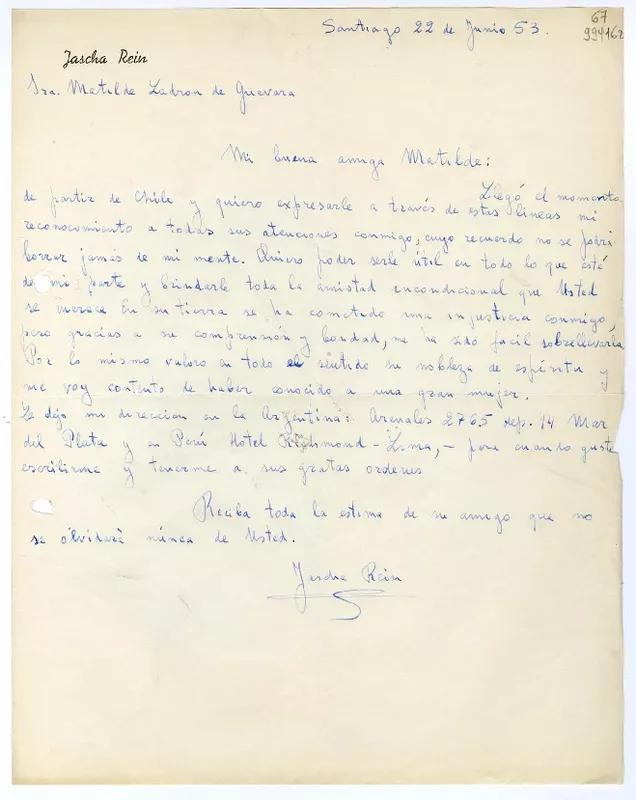 67
994162
Santiago 22 de Junio 53.
Jascha Rein
Sra. Matilde Ladron de Guevara
Mi buena amiga Matilde:
Llegó el momento
de partir de Chile y quiero expresarle a través de estas lineas mi
reconocimiento a todas sus atenciones conmigo, cuyo recuerdo no se podrá
borrar jamás de mi mente. Quiero poder serle útil en todo lo que esté
de mi parte y brindarle toda la amistad incondicional que Usted
se merece En su tierra se ha cometido una injusticia conmigo,
pero gracias a su comprensión y bondad, me ha sido fácil sobrellevarla
Por lo mismo valoro en todo el sentido su nobleza de espíritu y
me voy contento de haber conocido a una gran mujer.
Le dejo mi direccion en la Argentina: Arenales 2765 dep. 14 Mar
del Plata y en Perú Hotel - Lima, - para cuando guste
escribirme y tenerme a sus gratas ordenes
Reciba toda la estima de su amigo que no
se olvidará núnca de Usted.
Jascha Rein